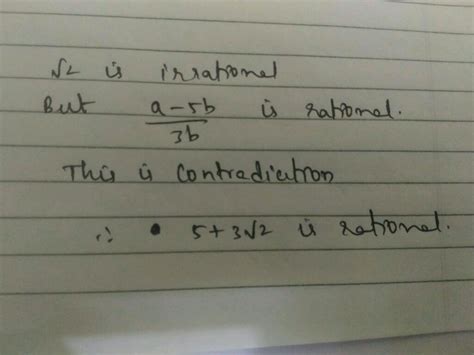 √2 is irrational
But (a-5b)/3b is rational.
This is contradiction
∴ • 5+3√2 is rational.